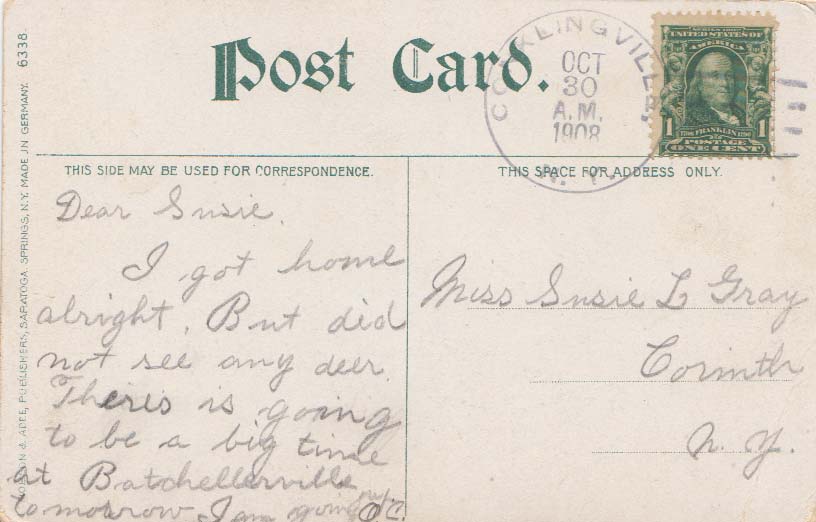 Post Card.
CONKLINGVILLE,
OCT
30
A.M.
1908
N. Y.
SERIES 1902
UNITED STATES OF
AMERICA
1 1706 FRANKLIN 1790 1
POSTAGE
ONE CENT
THIS SIDE MAY BE USED FOR CORRESPONDENCE.
THIS SPACE FOR ADDRESS ONLY.
Dear Susie.
I got home
alright. But did
not see any deer.
Theres is going
to be a big time
at Batchellerville
tomorrow I am going
O.C.
Miss Susie L Gray
Corinth
N. Y.
& ADEE, PUBLISHERS, SARATOGA SPRINGS, N.Y. MADE IN GERMANY. 6338